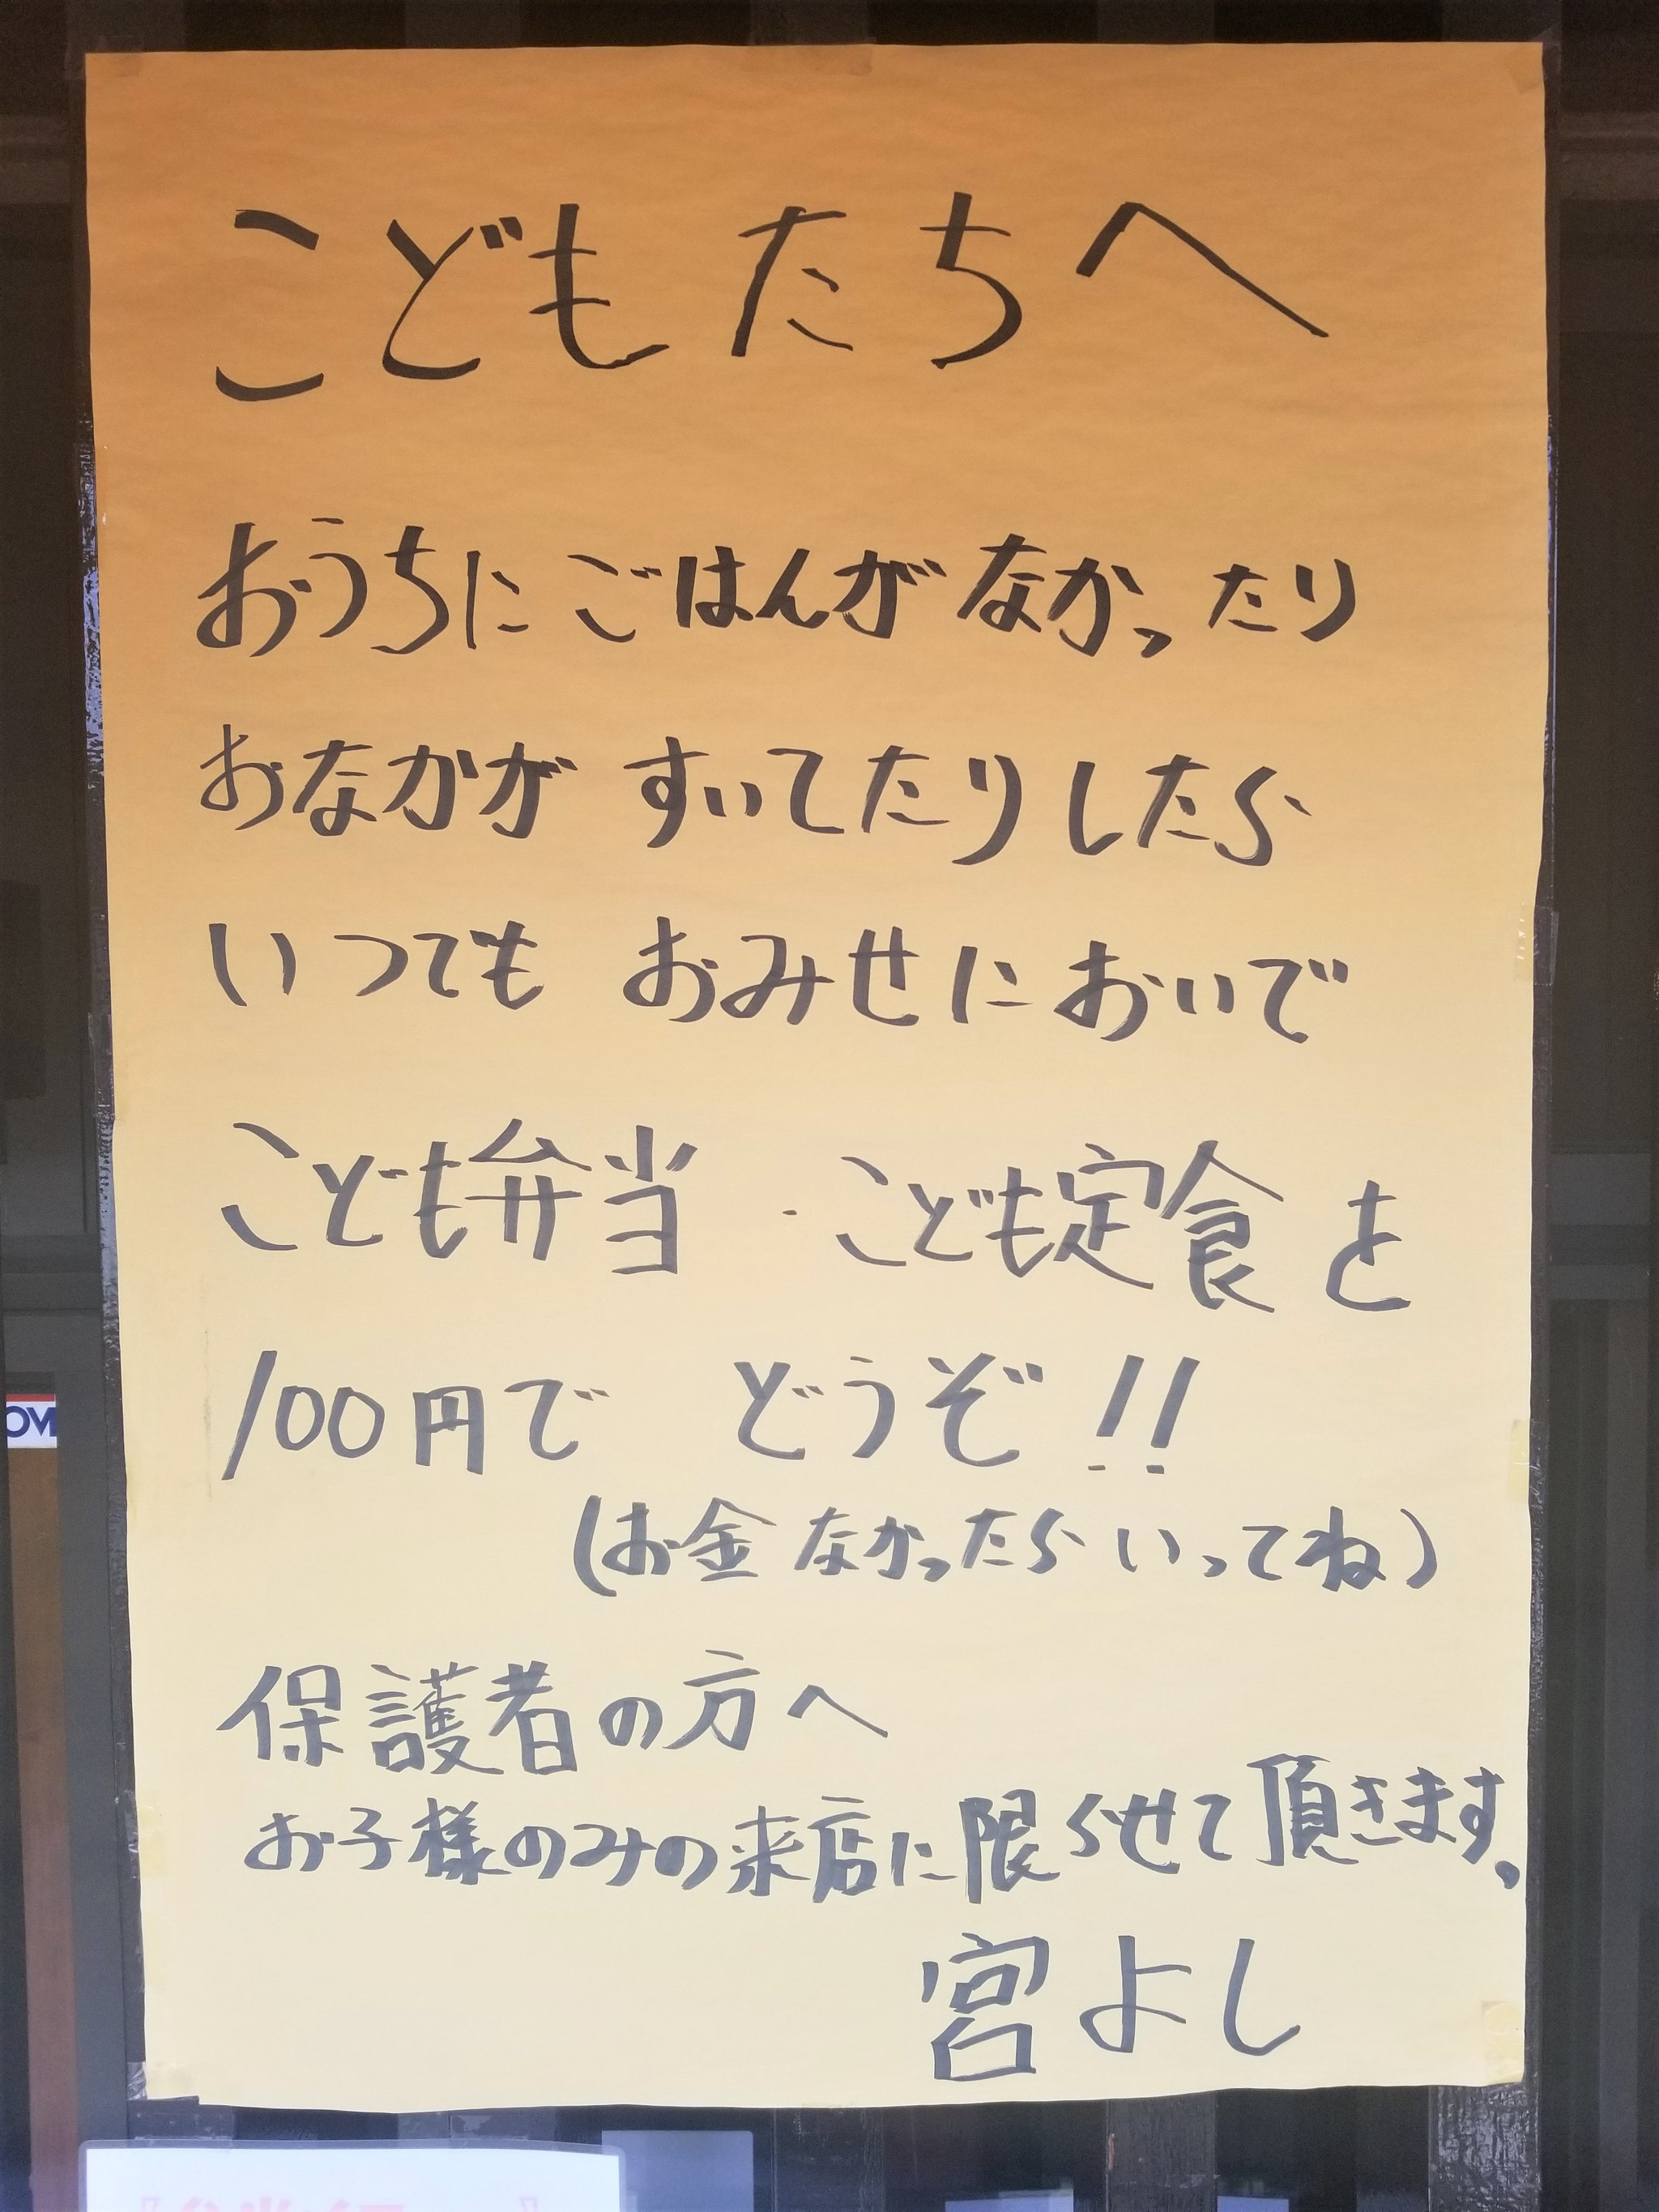 こどもたちへ
おうちに ごはんが なかったり
おなかが すいてたりしたら
いつでも おみせに おいで
こども弁当・こども定食を
100円で どうぞ!!
(お金 なかったら いってね)
保護者の方へ
お子様のみの来店に限らせて頂きます。
宮よし